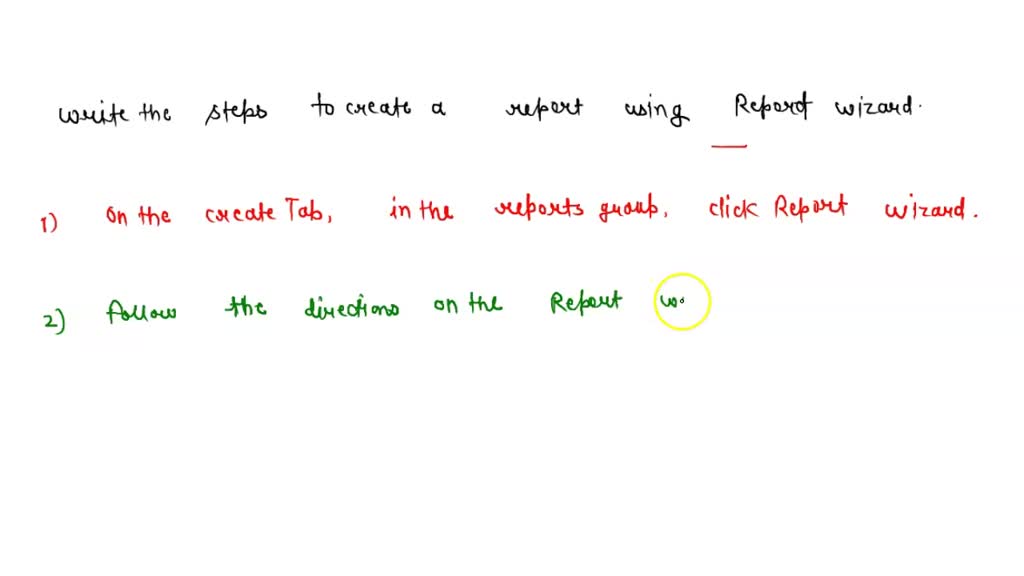 write the steps to create a report using Report wizard.
1) on the create Tab, in the reports group, click Report wizard.
2) follow the directions on the Report